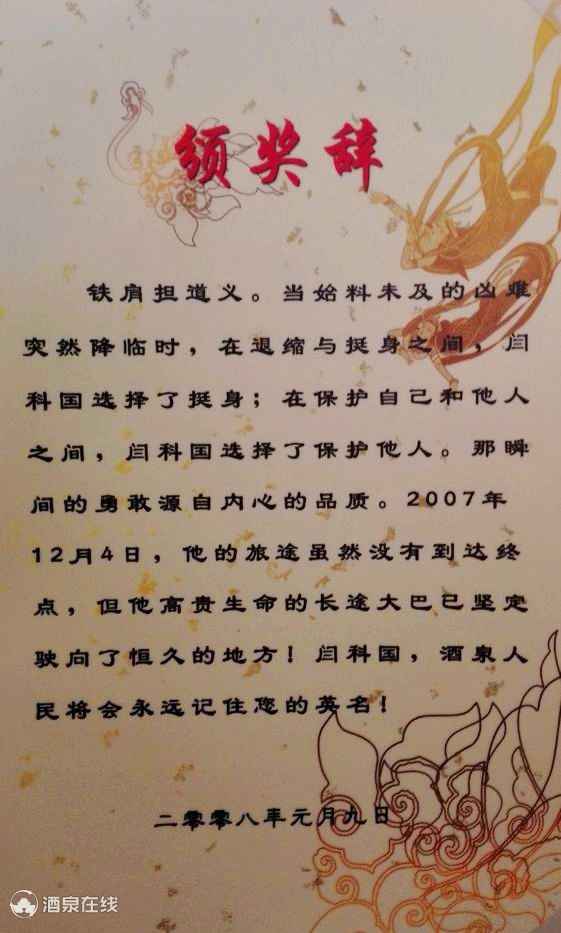 颁奖辞
铁肩担道义。当始料未及的凶难
突然降临时，在退缩与挺身之间，闫
科国选择了挺身；在保护自己和他人
之间，闫科国选择了保护他人。那瞬
间的勇敢源自内心的品质。2007年
12月4日，他的旅途虽然没有到达终
点，但他高贵生命的长途大巴已坚定
驶向了恒久的地方！闫科国，酒泉人
民将会永远记住您的英名！
二零零八年元月九日
酒泉在线